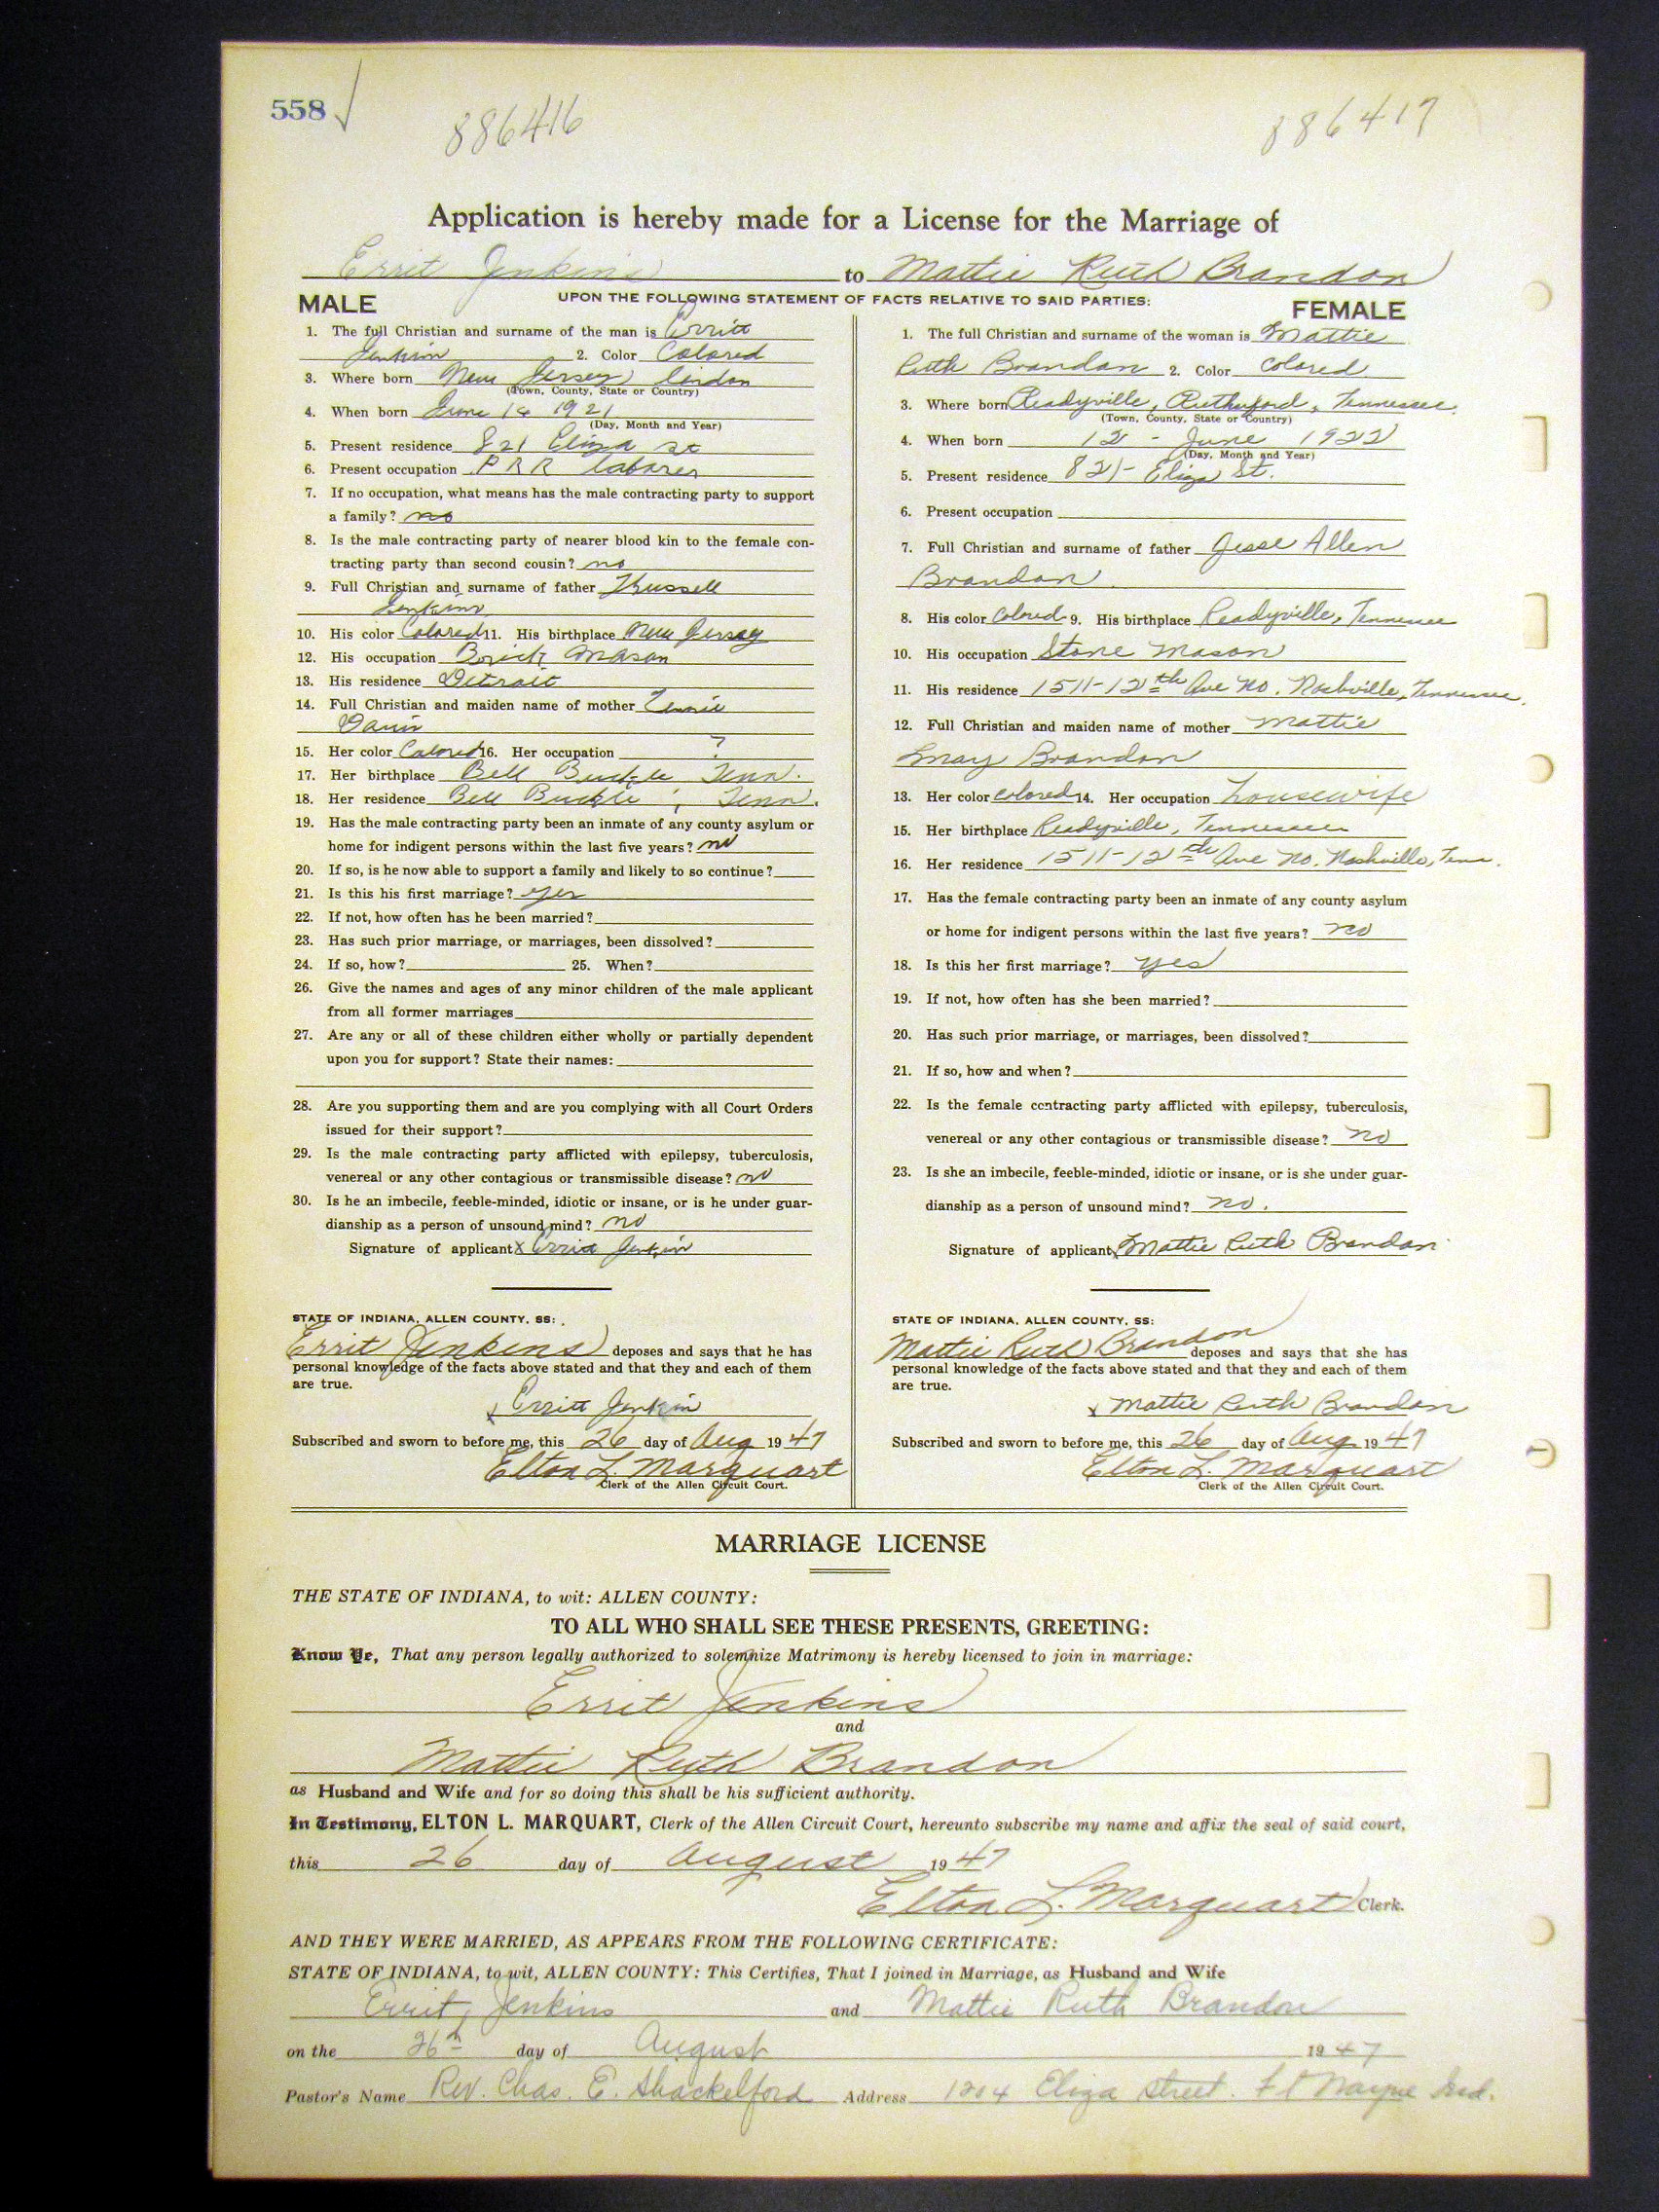 558
886416
886417
Application is hereby made for a License for the Marriage of
Errit Jenkins to Mattie Ruth Brandon
UPON THE FOLLOWING STATEMENT OF FACTS RELATIVE TO SAID PARTIES:
MALE
1. The full Christian and surname of the man is Erritt
Jenkin 2. Color Colored
3. Where born New Jersey Lindon
(Town, County, State or Country)
4. When born June 16 1921
(Day, Month and Year)
5. Present residence 821 Eliza st
6. Present occupation P R R laborer
7. If no occupation, what means has the male contracting party to support
a family? no
8. Is the male contracting party of nearer blood kin to the female con-
tracting party than second cousin? no
9. Full Christian and surname of father Thussell
Jenkins
10. His color Colored 11. His birthplace New Jersey
12. His occupation Brick Mason
13. His residence Detroit
14. Full Christian and maiden name of mother
15. Her color Colored 16. Her occupation ?
17. Her birthplace Bell Buckle Tenn.
18. Her residence Bell Buckle, Tenn.
19. Has the male contracting party been an inmate of any county asylum or
home for indigent persons within the last five years? no
20. If so, is he now able to support a family and likely to so continue?
21. Is this his first marriage? yes
22. If not, how often has he been married?
23. Has such prior marriage, or marriages, been dissolved?
24. If so, how? 25. When?
26. Give the names and ages of any minor children of the male applicant
from all former marriages
27. Are any or all of these children either wholly or partially dependent
upon you for support? State their names:
28. Are you supporting them and are you complying with all Court Orders
issued for their support?
29. Is the male contracting party afflicted with epilepsy, tuberculosis,
venereal or any other contagious or transmissible disease? no
30. Is he an imbecile, feeble-minded, idiotic or insane, or is he under guar-
dianship as a person of unsound mind? no
Signature of applicant x Erritt Jenkin
STATE OF INDIANA, ALLEN COUNTY, SS:
Errit Jenkins deposes and says that he has
personal knowledge of the facts above stated and that they and each of them
are true.
x Erritt Jenkin
Subscribed and sworn to before me, this 26 day of Aug 1947
Elton L. Marquart
Clerk of the Allen Circuit Court.
FEMALE
1. The full Christian and surname of the woman is Mattie
Ruth Brandon 2. Color Colored
3. Where born Readyville, Rutherford, Tennessee.
(Town, County, State or Country)
4. When born 12 - June 1922
(Day, Month and Year)
5. Present residence 821- Eliza St.
6. Present occupation
7. Full Christian and surname of father Jesse Allen
Brandon
8. His color Colored 9. His birthplace Readyville, Tennessee
10. His occupation Stone Mason
11. His residence 1511-12th Ave No. Nashville, Tennessee.
12. Full Christian and maiden name of mother Mattie
May Brandon
13. Her color colored 14. Her occupation housewife
15. Her birthplace Readyville, Tennessee
16. Her residence 1511-12th Ave No. Nashville, Tenn.
17. Has the female contracting party been an inmate of any county asylum
or home for indigent persons within the last five years? no
18. Is this her first marriage? yes
19. If not, how often has she been married?
20. Has such prior marriage, or marriages, been dissolved?
21. If so, how and when?
22. Is the female contracting party afflicted with epilepsy, tuberculosis,
venereal or any other contagious or transmissible disease? no
23. Is she an imbecile, feeble-minded, idiotic or insane, or is she under guar-
dianship as a person of unsound mind? no.
Signature of applicant x Mattie Ruth Brandon
STATE OF INDIANA, ALLEN COUNTY, SS:
Mattie Ruth Brandon deposes and says that she has
personal knowledge of the facts above stated and that they and each of them
are true.
x Mattie Ruth Brandon
Subscribed and sworn to before me, this 26 day of Aug 1947
Elton L. Marquart
Clerk of the Allen Circuit Court.
MARRIAGE LICENSE
THE STATE OF INDIANA, to wit: ALLEN COUNTY:
TO ALL WHO SHALL SEE THESE PRESENTS, GREETING:
Know Ye, That any person legally authorized to solemnize Matrimony is hereby licensed to join in marriage:
Errit Jenkins
and
Mattie Ruth Brandon
as Husband and Wife and for so doing this shall be his sufficient authority.
In Testimony, ELTON L. MARQUART, Clerk of the Allen Circuit Court, hereunto subscribe my name and affix the seal of said court,
this 26 day of August 1947
Elton L. Marquart Clerk.
AND THEY WERE MARRIED, AS APPEARS FROM THE FOLLOWING CERTIFICATE:
STATE OF INDIANA, to wit, ALLEN COUNTY: This Certifies, That I joined in Marriage, as Husband and Wife
Errit Jenkins and Mattie Ruth Brandon
on the 26th day of August 1947
Pastor's Name Rev. Chas. E. Shackelford Address 1204 Eliza Street. Ft Wayne Ind.